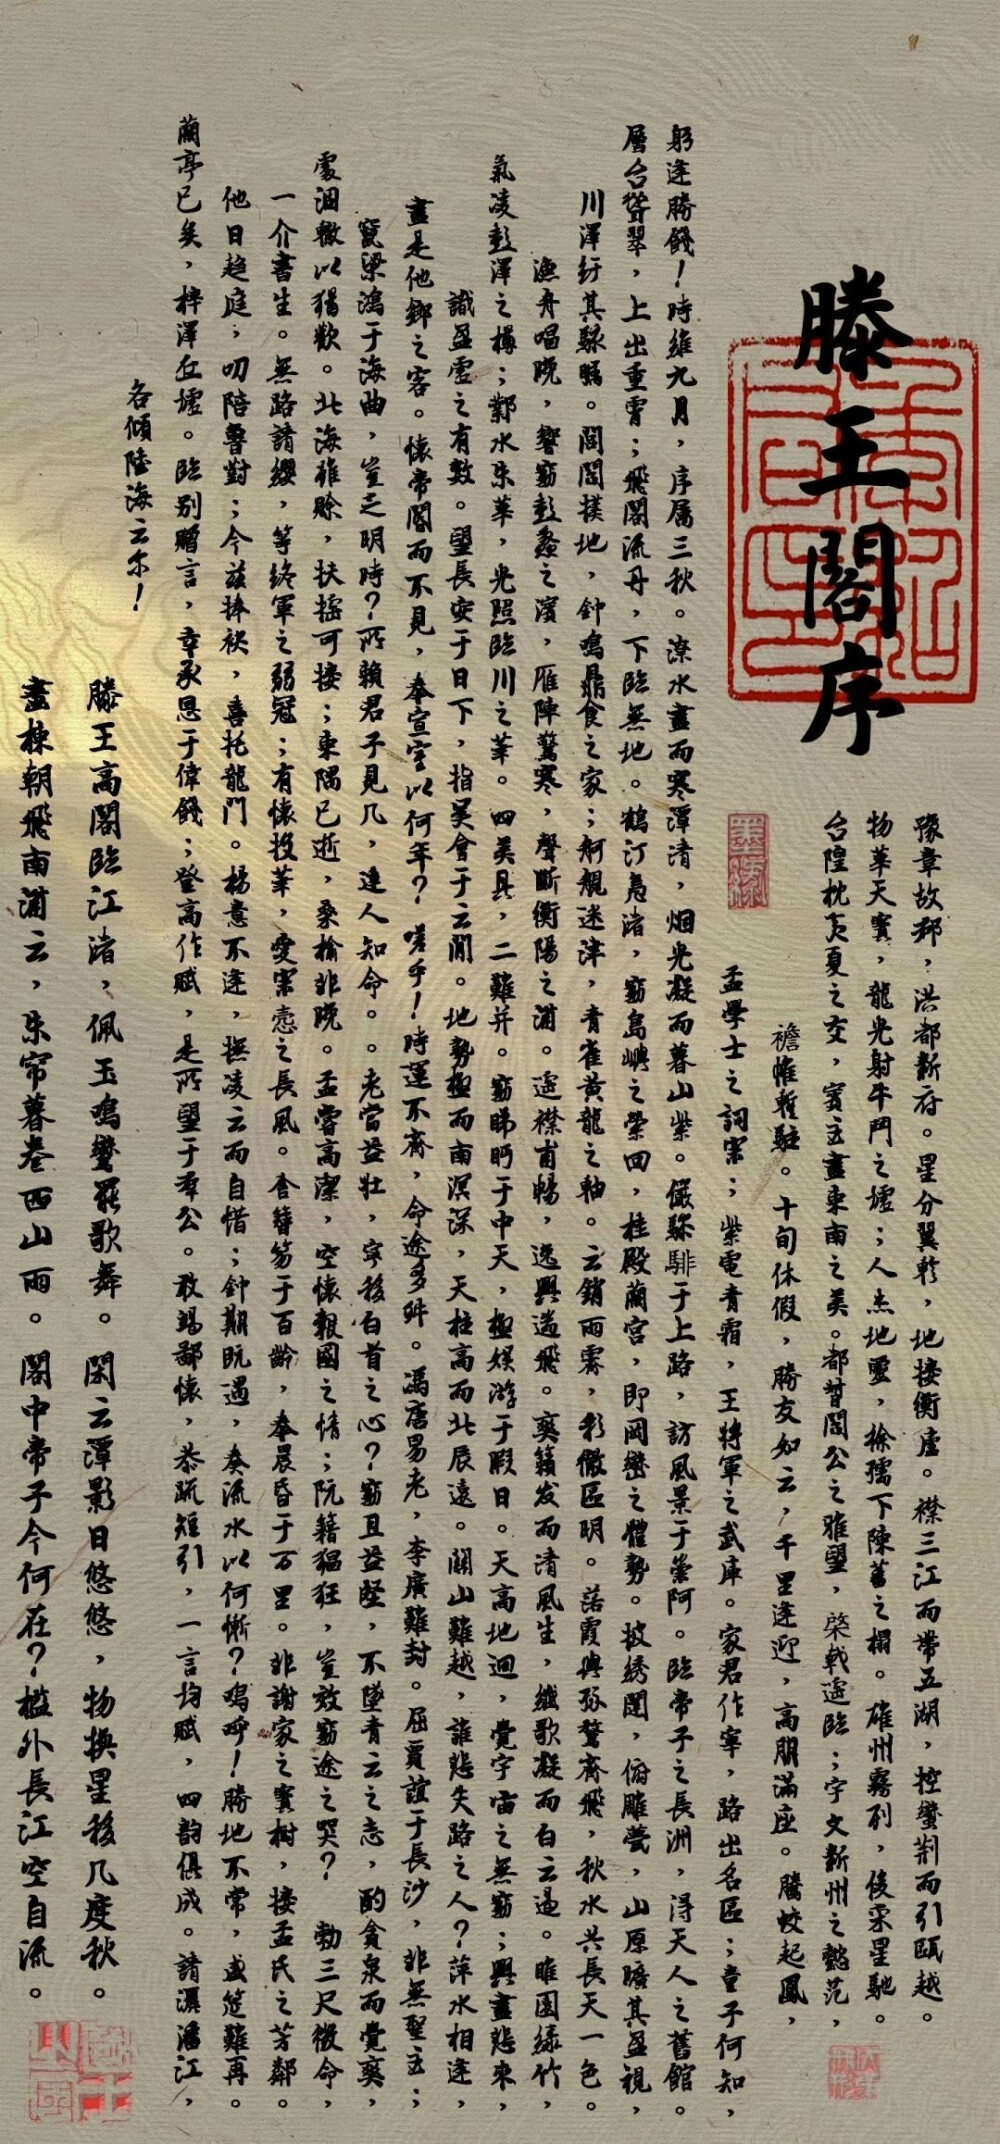 滕王閣序
豫章故郡，洪都新府。星分翼軫，地接衡廬。襟三江而帶五湖，控蠻荊而引甌越。
物華天寶，龍光射牛鬥之墟；人杰地靈，徐孺下陳蕃之榻。雄州霧列，俊采星馳。
台隍枕夷夏之交，賓主盡東南之美。都督閻公之雅望，棨戟遙臨；宇文新州之懿范，
襜帷暫駐。十旬休假，勝友如云，千里逢迎，高朋滿座。騰蛟起鳳，
孟學士之詞宗；紫電青霜，王將軍之武庫。家君作宰，路出名區；童子何知，
躬逢勝餞！時維九月，序屬三秋。潦水盡而寒潭清，烟光凝而暮山紫。儼驂騑于上路，訪風景于崇阿。臨帝子之長洲，得天人之舊館。
層台聳翠，上出重霄；飛閣流丹，下臨無地。鶴汀鳧渚，窮島嶼之縈回，桂殿蘭宮，即岡巒之體勢。披綉闥，俯雕甍，山原曠其盈視，
川澤紆其駭矚。閭閻撲地，鐘鳴鼎食之家；舸艦迷津，青雀黃龍之軸。云銷雨霽，彩徹區明。落霞與孤鶩齊飛，秋水共長天一色。
漁舟唱晚，響窮彭蠡之濱，雁陣驚寒，聲斷衡陽之浦。遙襟甫暢，逸興遄飛。爽籟发而清風生，纖歌凝而白云遏。睢園綠竹，
氣凌彭澤之樽；鄴水朱華，光照臨川之筆。四美具，二難并。窮睇眄于中天，極娛游于暇日。天高地迥，覺宇宙之無窮；興盡悲來，
識盈虛之有數。望長安于日下，指吴會于云間。地勢極而南溟深，天柱高而北辰遠。關山難越，誰悲失路之人？萍水相逢，
盡是他鄉之客。懷帝閽而不見，奉宣室以何年？嗟乎！時運不齊，命途多舛。馮唐易老，李廣難封。屈賈誼于長沙，非無聖主；
竄梁鴻于海曲，豈乏明時？所賴君子見几，達人知命。。老當益壯，寧移白首之心？窮且益堅，不墜青云之志，酌貪泉而覺爽，
處涸轍以猶歡。北海雖賒，扶搖可接；東隅已逝，桑榆非晚。孟嘗高潔，空懷報國之情；阮籍猖狂，豈效窮途之哭？ 勃三尺微命，
一介書生。無路請纓，等終軍之弱冠；有懷投筆，愛宗慤之長風。舍簪笏于百齡，奉晨昏于万里。非謝家之寶樹，接孟氏之芳鄰。
他日趋庭，叨陪鯉對；今兹捧袂，喜托龍門。楊意不逢，撫凌云而自惜；鐘期既遇，奏流水以何慚？嗚呼！勝地不常，盛筵難再。
蘭亭已矣，梓澤丘墟。臨别贈言，幸承恩于偉餞；登高作賦，是所望于群公。敢竭鄙懷，恭疏短引，一言均賦，四韵俱成。請灑潘江，
各傾陸海云尔！
滕王高閣臨江渚，佩玉鳴鸞罷歌舞。閑云潭影日悠悠，物換星移几度秋。
畫棟朝飛南浦云，朱帘暮卷西山雨。閣中帝子今何在？檻外長江空自流。